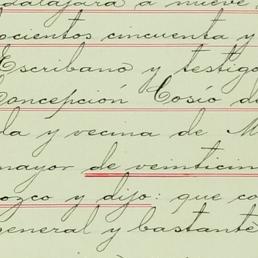 dalajara a nueve
ocientos cincuenta y
Escribano y testigo
Concepción Cosío d
da y vecina de M
mayor de veinticin
ozco y dijo: que co
general y bastante